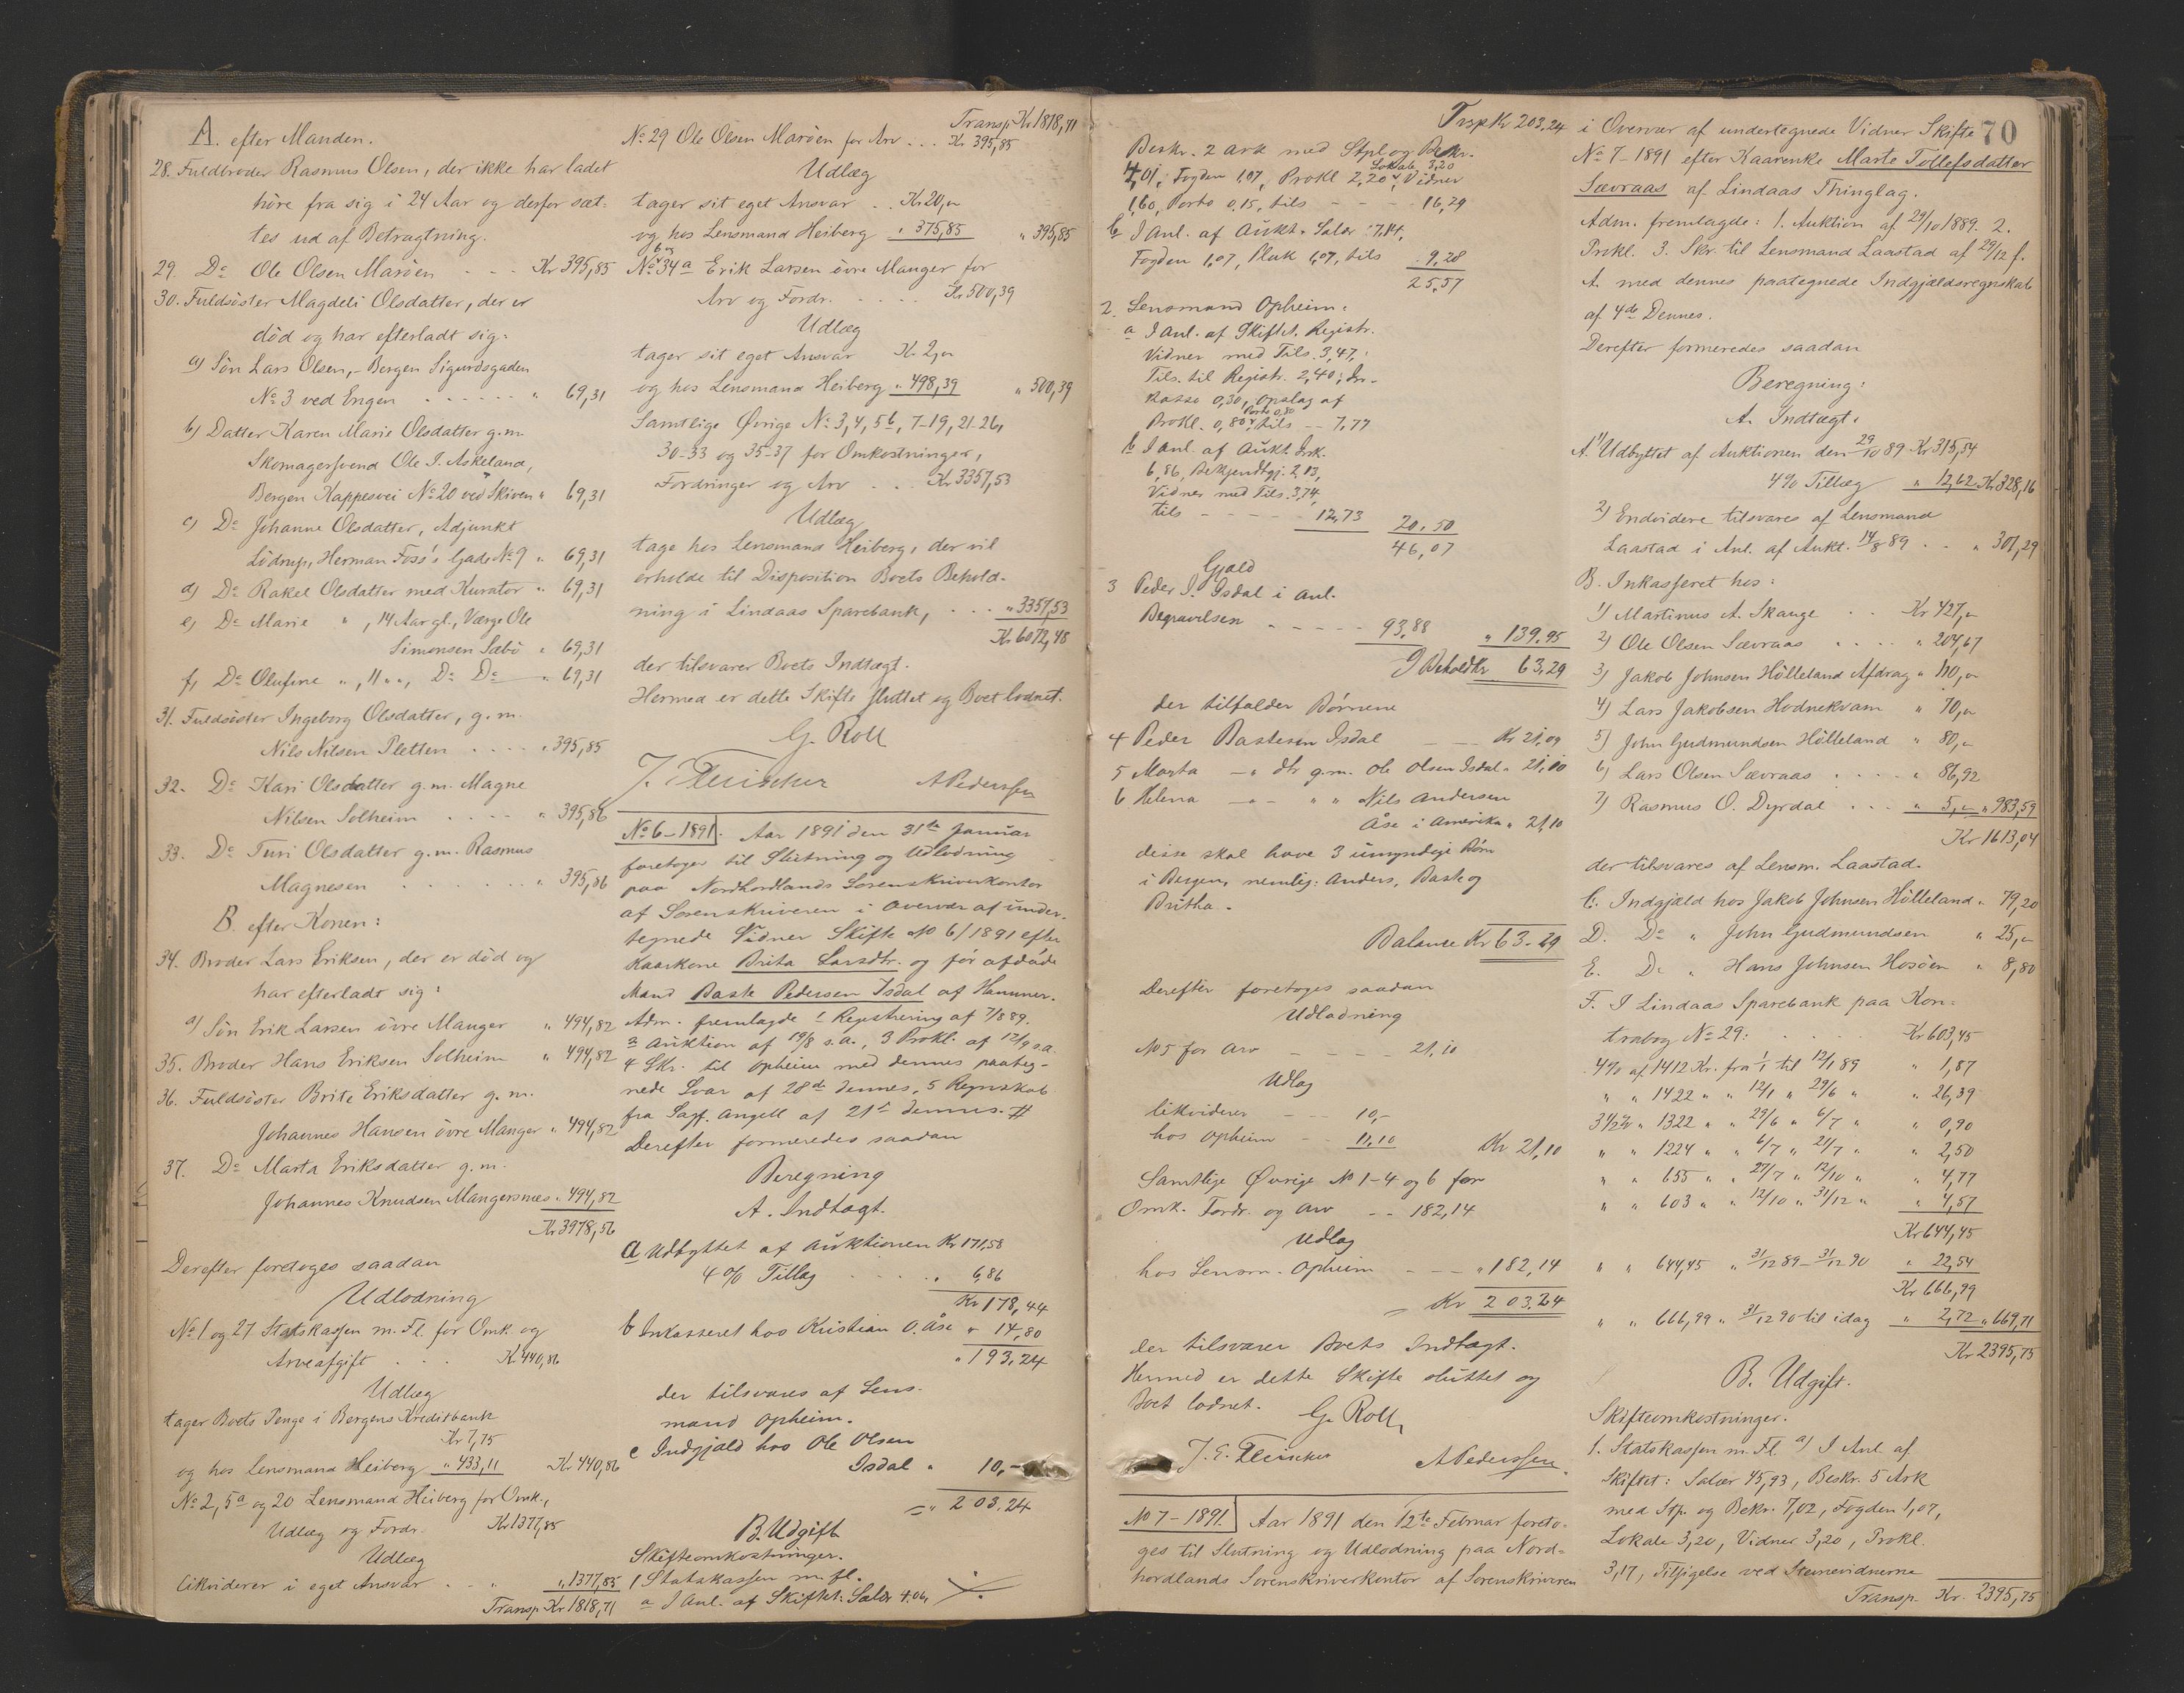 A. efter Manden.
28. Fuldbroder Rasmus Olsen, der ikke har ladet
höre fra sig i 24 Aar og derfor sæt-
tes ud af Betragtning.
29. Do Ole Olsen Maröen . . . Kr 395,85
30. Fuldsöster Magdeli Olsdatter, der er
död og har efterladt sig:
a) Sön Lars Olsen, - Bergen Sigurdsgaden
No 3 ved Engen . . . . . . " 69,31
b) Datter Karen Marie Olsdatter g.m.
Skomagersvend Ole I. Askeland,
Bergen Kappesvei No 20 ved Skiven " 69,31
c) Do Johanne Olsdatter, Adjunkt
Lödrup, Herman Foss's Gade No 9 " 69,31
d) Do Rakel Olsdatter med Kurator " 69,31
e) Do Marie " , 14 Aar gl., Værge Ole
Simonsen Sæbö " 69,31
f, Do Olufine " , 11 " ", Do Do " 69,31
31. Fuldsöster Ingeborg Olsdatter, g.m.
Nils Nilsen Pletten . . . . " 395,85
32. Do Kari Olsdatter g.m. Magne
Nilsen Solheim . . . . " 395,86
33. Do Turi Olsdatter g.m. Rasmus
Magnesen . . . . . . . " 395,86
B. efter Konen:
34. Broder Lars Eriksen, der er död og
har efterladt sig:
a) Sön Erik Larsen övre Manger " 494,82
35. Broder Hans Eriksen Solheim " 494,82
36. Fuldsöster Brite Eriksdatter g.m.
Johannes Hansen övre Manger " 494,82
37. Do Marta Eriksdatter g.m.
Johannes Knudsen Mangersnæs " 494,82
Kr 3978,56
Derefter foretoges saadan
Udlodning
No 1 og 27 Statskassen m. Fl. for Omk. og
Arveafgift . . . Kr 440,86
Udlæg
tager Boets Penge i Bergens Kreditbank
Kr 7,75
og hos Lensmand Heiberg " 433,11 Kr 440,86
No 2, 5a og 20 Lensmand Heiberg for Omk.,
Udlæg og Fordr. Kr 1377,85
Udlæg
likviderer i eget Ansvar . . " 1377,85
Transp. Kr 1818,71
Transp Kr 1818,71
No 29 Ole Olsen Maröen for Arv . . . Kr 395,85
Udlæg
tager sit eget Ansvar . . Kr 20,"
og hos Lensmand Heiberg " 375,85 " 395,85
No 6 og 34a Erik Larsen övre Manger for
Arv og Fordr. . . . . . Kr 500,39
Udlæg
tager sit eget Ansvar Kr 2,"
og hos Lensmand Heiberg " 498,39 " 500,39
Samtlige Øvrige No 3, 4, 5b, 7-19, 21-26,
30-33 og 35-37 for Omkostninger,
Fordringer og Arv . . . Kr 3357,53
Udlæg
tage hos Lensmand Heiberg, der vil
erholde til Disposition Boets Behold-
ning i Lindaas Sparebank, . . . " 3357,53
Kr 6072,48
der tilsvarer Boets Indtægt.
Hermed er dette Skifte sluttet og Boet lodnet.
G. Roll
J. Fleischer A Pederssen
No 6-1891. Aar 1891 den 31te Januar
foretoges til Slutning og Udlodning
paa Nordhordlands Sorenskriverkontor
af Sorenskriveren i Overvær af under-
tegnede Vidner Skifte No 6/1891 efter
Kaarkone Brita Larsdtr. og för afdöde
Mand Baste Pedersen Isdal af Hammer.
Adm. fremlagde 1 Registrering af 7/8 89.
2 Auktion af 19/8 s.a., 3 Prokl. af 12/9 s.a.
4 Skr. til Opheim med dennes paateg-
nede Svar af 28de dennes, 5 Regnskab
fra Sagf. Angell af 21de dennes.
Derefter formeredes saadan
Beregning
A. Indtægt.
a Udbyttet af Auktionen Kr 171,58
4 % Tillæg . . . . " 6,86
Kr 178,44
b Inkasseret hos Kristian O. Åse " 14,80
" 193,24
der tilsvares af Lens-
mand Opheim.
c Indgjæld hos Ole Olsen
Isdal " 10,-
" 203,24
B. Udgift
Skifteomkostninger.
1 Statskassen m. fl.
a I Anl. af Skiftet: Salær 4.06,
Trsp Kr 203,24
Beskr. 2 Ark med Stpl og Bekr.
4,01, Fogden 1,07, Prokl 2,20, Lokale 3,20, Vidner
1,60, Porto 0,15, tils - - - 16,29
b I Anl. af Aukt. Salær 7,14,
Fogden 1,07, Pluk 1,07, tils 9,28
25,57
2. Lensmand Opheim:
a I Anl. af Skiftet. Registr.
Vidner med Tils. 3,47,
Tils. til Registr. 2,40, In-
kasso 0,30, Opslag af
Prokl. 0,80, Porto 0,80 tils -- 7,77
b I Anl. af Aukt. Ink.
6,86, Bekjendtgj. 2,13,
Vidner med Tils. 3,74,
tils - - - - 12,73 20.50
46,07
Gjæld
3 Peder I. Isdal i Anl.
Begravelsen - - - - - 93,88 " 139.95
I Behold Kr 63.29
der tilfalder Børnene
4 Peder Bastesen Isdal - - Kr 21,09
5 Marta - " dtr g.m. Ole Olsen Isdal " 21,10
6 Helena - " - " " Nils Andersen
Åse i Amerika " 21,10
disse skal have 3 umyndige Børn
i Bergen, nemlig: Anders, Baste og
Britha.
Balance Kr 63.29
Derefter foretoges saadan
Udlodning
No 5 for Arv - - - - 21,10
Udlæg
likviderer - - - 10,-
hos Opheim - - 11,10 Kr 21,10
Samtlige Øvrige No 1-4 og 6 for
Omk. Fordr. og Arv - - 182,14
Udlæg
hos Lensm. Opheim - - - " 182,14
Kr 203.24
der tilsvarer Boets Indtægt.
Hermed er dette Skifte sluttet og
Boet lodnet.
G. Roll
J. E. Fleischer A Pederssen.
No 7-1891. Aar 1891 den 12te Februar foreto-
ges til Slutning og Udlodning paa Nord-
hordlands Sorenskriverkontor af Sorenskriveren
70
i Overvær af undertegnede Vidner Skifte
No 7-1891 efter Kaarenke Marte Tollefsdatter
Sævraas af Lindaas Thinglag.
Adm. fremlagde: 1. Auktion af 29/10 1889. 2.
Prokl. 3. Skr. til Lensmand Laastad af 29/12 f.
A. med dennes paategnede Indgjældsregnskab
af 4de Dennes.
Derefter formeredes saadan
Beregning:
A. Indtægt.
A. 1) Udbyttet af Auktionen den 29/10 89 Kr 315,54
4 % Tillæg " 12,62 Kr 328,16
2) Endvidere tilsvares af Lensmand
Laastad i Anl. af Aukt. 14/8 89 . . " 301,29
B. Inkasseret hos:
1) Martinus A. Skauge . . Kr 427,"
2) Ole Olsen Sævraas . . . . " 204,67
3) Jakob Johnsen Hölleland Afdrag " 110,"
4) Lars Jakobsen Hodnekvam " 70,"
5) John Gudmundsen Hölleland " 80,"
6) Lars Olsen Sævraas . . . . " 86,92
7) Rasmus O. Dyrdal . . . " 5," " 983,59
Kr 1613,04
der tilsvares af Lensm. Laastad.
C. Indgjæld hos Jakob Johnsen Hölleland " 79,20
D. Do " John Gudmundsen " 25,"
E. Do " Hans Johnsen Hosöen " 8,80
F. I Lindaas Sparebank paa Kon-
trabog No 29: . . . Kr 603,45
4% af 1412 Kr. fra 1/1 til 12/1 89 " 1,87
" " 1422 " " 12/1 " 29/6 " " 26,39
3 1/2 % " 1322 " " 29/6 " 6/7 " " 0,90
" " 1224 " " 6/7 " 27/7 " " 2,50
" " 655 " " 27/7 " 12/10 " " 4,77
" " 603 " " 12/10 " 31/12 " " 4,57
Kr 644,45
" " 644,45 " 31/12 89 - 31/12 90 " 22,54
Kr 666,99
" " 666,99 " 31/12 90 til idag " 2,72 " 669,71
Kr 2395,75
B. Udgift.
Skifteomkostninger.
1. Statskassen m. Fl. a) I Anl. af
Skiftet: Salær 45,93, Beskr. 5 Ark
med Stp. og Bekr. 7,02, Fogden 1,07,
Lokale 3,20, Vidner 3,20, Prokl.
3,17, Tilsigelse ved Stevnevidnerne
Transp. Kr. 2395,75